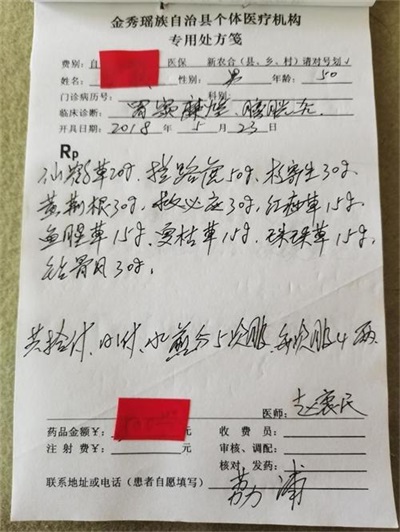 金秀瑶族自治县个体医疗机构
专用处方笺
费别：自 医保 新农合（县、乡、村）请对号划√
姓名： 性别：男 年龄：50
门诊病历号： 科别：
临床诊断：胃
开具日期：2018年5月23日
Rp
仙鹤草20g，过路 50g，村寄生30g，
黄荆根30g，救必应30g，红 草15g，
鱼腥草15g，夏枯草15g，珠珠草15g，
钻骨风30g，
共拾付，日1付，水煎分5次服，每次服4两
医师：赵
药品金额￥： 元 收费员：
注射费￥： 元 审核、调配：
核对、发药：
联系地址或电话（患者自愿填写）